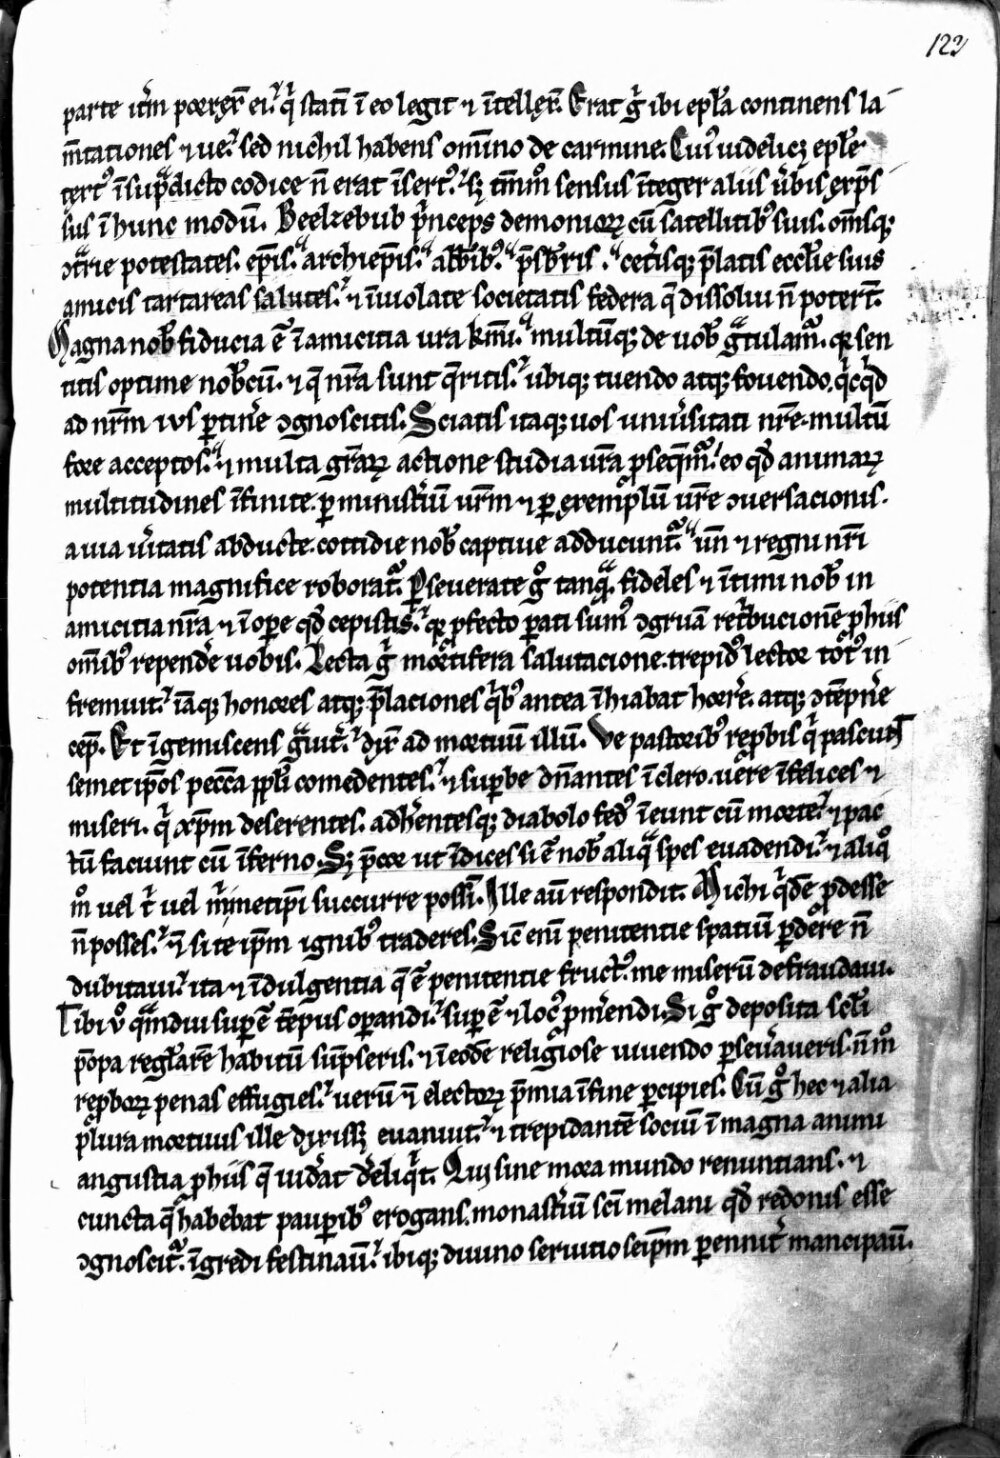 122
parte it̄m porrex̄ ei᷒. q̇ stati ī eo legit ⁊ ītellex̄. Erat ġ ibi ep̄la continens la
m̄tationes ⁊ ue᷒. sed nichil habens om̄ino de carmine. Cui᷒ uidelicꝫ ep̄le
tert᷒ ī sup̄dicto codice n̄ erat īsert᷒. sꝫ tm̄m̊ sensus īteger aliis ūbis exp̄s
sus ī hunc modū. Beelzebub p̄nceps demonioꝝ cū satellitib᷒ suis. om̄sqꝫ
ↄt̄rie potestates. ep̄is. archiep̄is. abb̄ib᷒. p̄sb̄ris. cet̄isqꝫ p̄latis eccl̄ie suis
amicis tartareas salutes. ⁊ īuiolate societatis federa q̄ dissolui n̄ poter̄t.
Magna nob̄ fiducia ē ī amicitia ur̄a km̄i. multūqꝫ de uob̄ gᵃtulam̄. qꝛ sen
titis optime nob̄cū. ⁊ q̄ nr̄a sunt q̄ritis. ubiqꝫ tuendo atqꝫ fouendo. q̇cq̇d
ad nr̄m ius ꝑtiner̄e ↄgnoscitis. Sciatis itaqꝫ uos uniūsitati nr̄e multū
fore acceptos. ⁊ multa gr̄aꝝ actione studia ur̄a ꝓseq̄m̄. eo qd̄ animaꝝ
multitudines īfinite. ꝑ ministīū ur̄m ⁊ ꝑ exemplū ur̄e ↄuersacionis.
a uia ūitatis abducte. cottidie nob̄ captiue adducunt̄. un̄ ⁊ regni nr̄i
potentia magnifice roborat̄. ꝑseuerate g̊ tanq̄. fideles ⁊ ītimi nob̄ in
amicitia nr̄a ⁊ ī oꝑe qd̄ cepistis. qꝛ ꝓfecto ꝑati sum᷒ ↄgruā ret̄bucionē ꝓ hiis
om̄ib᷒ repender̄e uobis. Lecta ġ mortifera salutacione. trepid᷒ lector tot᷒ in
fremuit. iāqꝫ honores atqꝫ p̄laciones q̇b᷒ antea īhiabat horr̄e. atqꝫ ↄtēpn̄e
cep̄. Et īgemiscens gᵃuit̄. dix̄ ad mortuū illū. Ve pastorib᷒ rep̄bis q̇ pascunt
semet ip̄os pecc̄a pp̄li comedentes. ⁊ suꝑbe dn̄antes ī clero. uēre īfelices ⁊
miseri. q̇ xp̄m deserentes. adh̄entesqꝫ diabolo fed᷒ īeunt cū morte. ⁊ pac
tū faciunt cū īferno. Sꝫ p̄cor ut īdices si ē nob̄ aliq̄ spes euadendi. ⁊ aliq̊
m̊ uel t̄ uel m̄imetip̄i succurre possī. Ille aū respondit. Michi q̇dē ꝓdesse
n̄ posses. n̄ si te ip̄m ignib᷒ traderes. Sic̄ eni penitentie spatiū ꝑdere n̄
dubitaui. ita ⁊ īdulgentia q̄ ē penitentie fruct᷒. me miserū defraudaui.
Tibi v̊ qᵃmdiu suꝑē tēpus oꝑandi. suꝑē ⁊ loc᷒ ꝓm̄endi. Si g̊ deposita scl̄i
pōpa regl̄arē habitū sūpseris. ⁊ ī eodē religiose uiuendo ꝑseūaueris. n̄ m̊
rep̄boꝝ penas effugies. uerū ⁊ electoꝝ p̄mia ī fine ꝑcipies. Cū g̊ hec ⁊ alia
plura mortuus ille dixissꝫ euanuit. ⁊ trepidantē sociū ī magna animi
angustia ꝓ hiis q̄ uid̄at dēliq̇t. Qui sine mora mundo renuntians. ⁊
cuncta q̄ habebat paupib᷒ erogans. monastīū sc̄i melani qd̄ redonis esse
ↄgnoscit̄. īgredi festinauīt. ibiqꝫ diuino seruitio seip̄m ꝑenniꞇ̄ mancipauīt.